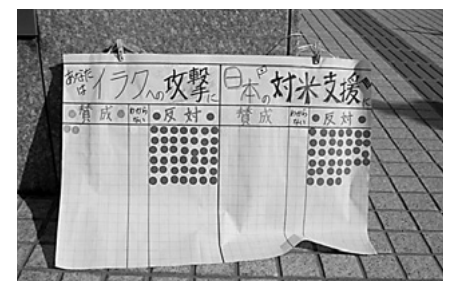 あなたは イラクへの攻撃に
日本の対米支援に
賛成 わからない 反対
賛成 わからない 反対